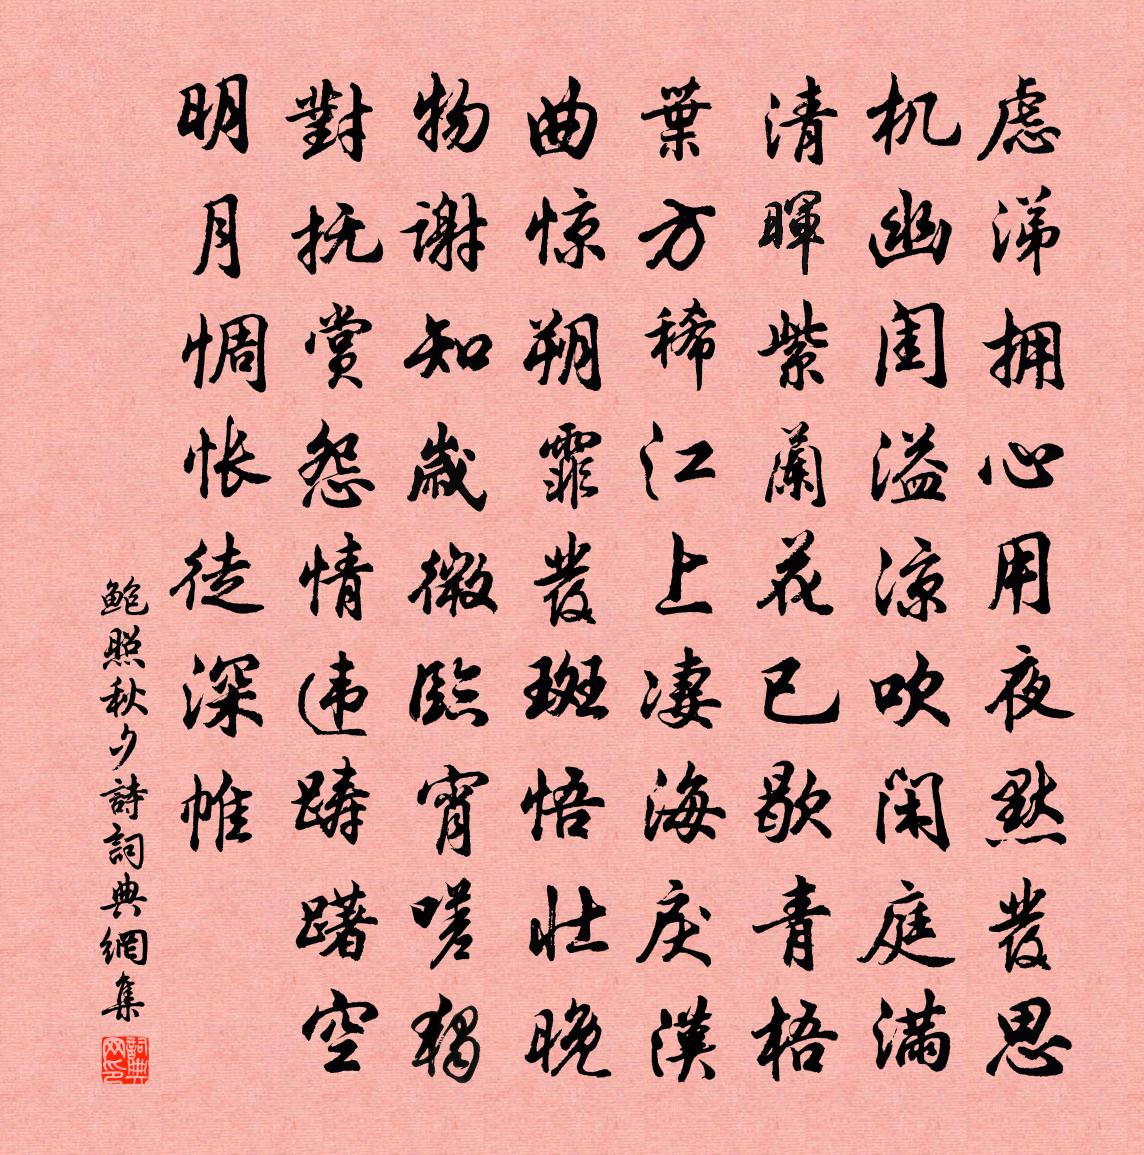 慮涕拥心用夜默發思
机幽闺溢凉吹闲庭滿
清暉紫蘭花已歇青梧
葉方稀江上凄海戾漢
曲惊朔霏發斑悟壮晚
物谢知歲微臨宵嗟獨
對抚赏怨情违踌躇空
明月惆怅徒深帷
鮑照秋夕詩詞典網集
詞典网印